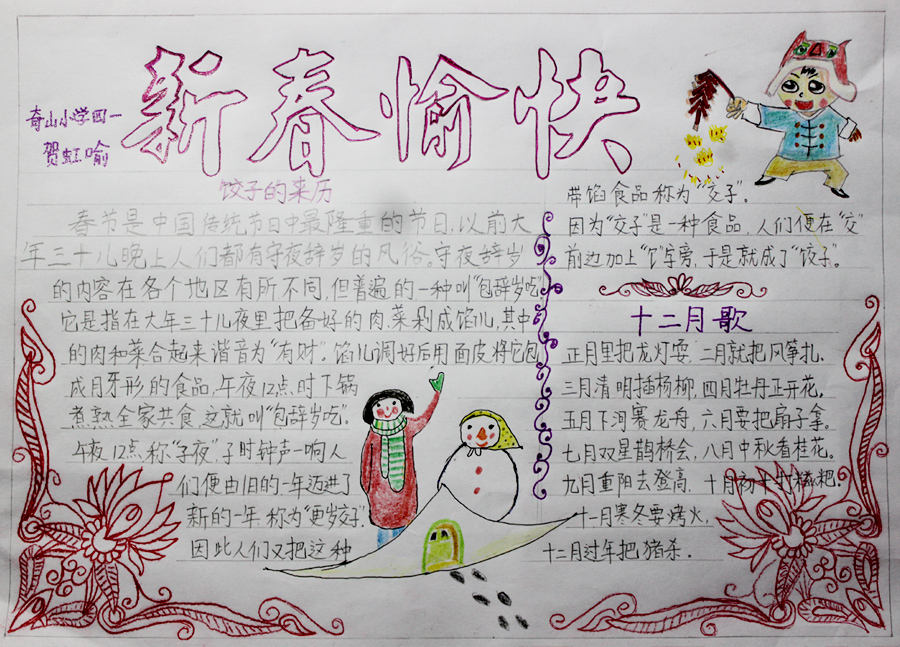 新春愉快
奇山小学四一
贺虹喻
饺子的来历
春节是中国传统节日中最隆重的节日,以前大
年三十儿晚上人们都有守夜辞岁的风俗。守夜辞岁
的内容在各个地区有所不同,但普遍的一种叫“包辞岁吃”
它是指在大年三十儿夜里把备好的肉、菜剁成馅儿,其中
的肉和菜合起来谐音为“有财”。馅儿调好后用面皮将它包
成月牙形的食品,午夜12点时下锅
煮熟全家共食,这就叫“包辞岁吃”。
午夜12点,称“子夜”,子时钟声一响人
们便由旧的一年迈进了
新的一年,称为“更岁交子”。
因此人们又把这种
带馅食品称为“交子”。
因为“交子”是一种食品,人们便在“交”
前边加上“饣”字旁,于是就成了“饺子”。
十二月歌
正月里把龙灯耍,二月就把风筝扎,
三月清明插杨柳,四月牡丹正开花,
五月下河赛龙舟,六月要把扇子拿。
七月双星鹊桥会,八月中秋香桂花。
九月重阳去登高,十月初十打糍粑。
十一月寒冬要烤火,
十二月过年把猪杀。